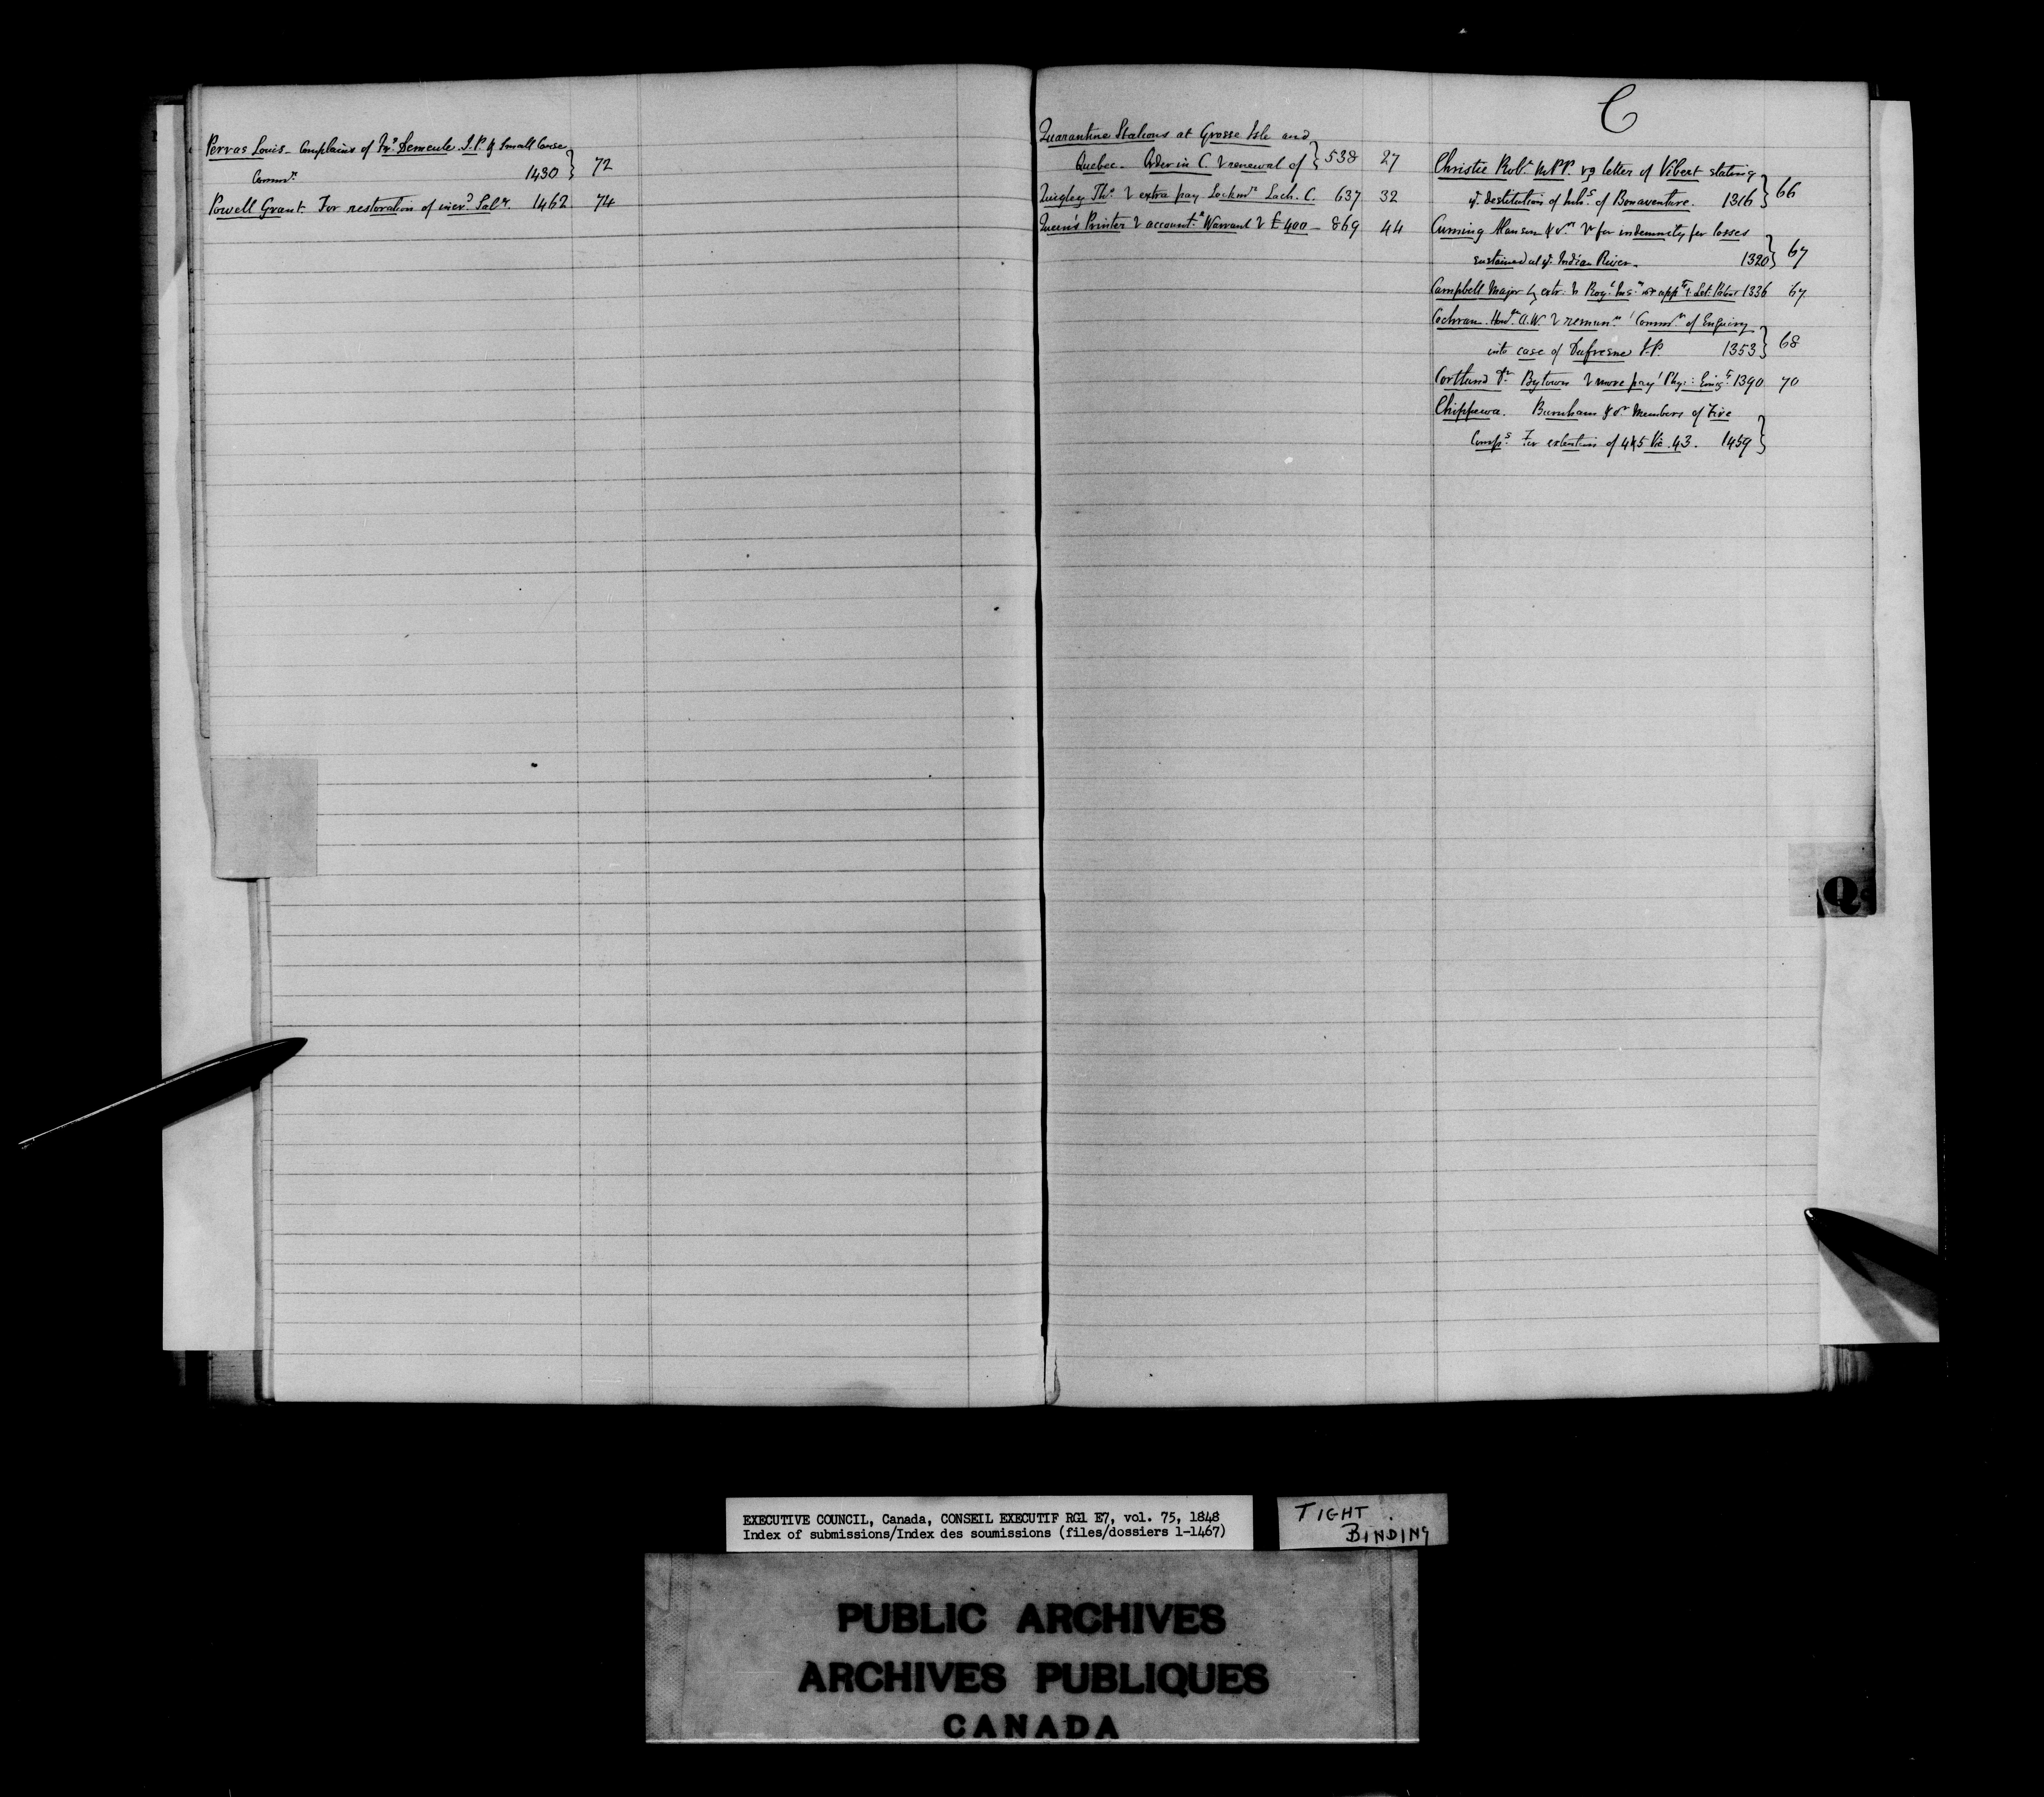 Pervas Louis - Complains of Frs Demeule J.P. & Small Cause
Commr. 1430 } 72
Powell Grant. For restoration of incrd Saly. 1462 74
Quarantine Stations at Grosse Isle and
Quebec. Order in C. renewal of } 538 27
Quigley Ths. extra pay Lockmr Lach. C. 637 32
Queen's Printer accountt Warrant £400 - 869 44
C
Christie Robt MPP. letter of Vibert stating
ye destitution of Inhs of Bonaventure. 1316 } 66
Cuming Manson & or for indemnity for losses
sustained at ye Indian River. 1320 } 67
Campbell Major Let. Patent 1336 67
Cochran Honl A.W. remunn Commn of Enquiry
into case of Dufresne J.P. 1353 } 68
Cortland Dr. Bytown more pay Phyn: Emigt 1390 70
Chippewa. Burnham & or Members of Fire
Comps For extention of 4&5 Vic. 43. 1459 }
Q
EXECUTIVE COUNCIL, Canada, CONSEIL EXECUTIF RG1 E7, vol. 75, 1848
Index of submissions/Index des soumissions (files/dossiers 1-1467)
TIGHT
BINDING
PUBLIC ARCHIVES
ARCHIVES PUBLIQUES
CANADA